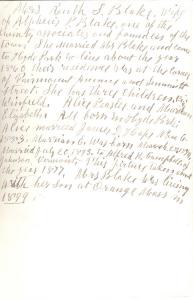 Mrs Ruth S. Blake, Wife
of Alpheus P. Blake, one of the
associates and founders of the
town. She married Mr Blake, and came
to Hyde Park to live about the year
1860 their residence was at the corner
of Fairmount Avenue and Summit
Street. She has three children,
Winfield, Alice and
Elizabeth. All born in Hyde Park.
Alice married James
1893. was born March
Married July 20, 1893. to Alfred H. Campbell of
Johnson, Vermont. This picture taken about
the year 1897. Mrs Blake was living
with her son at Orange Mass in
1899.